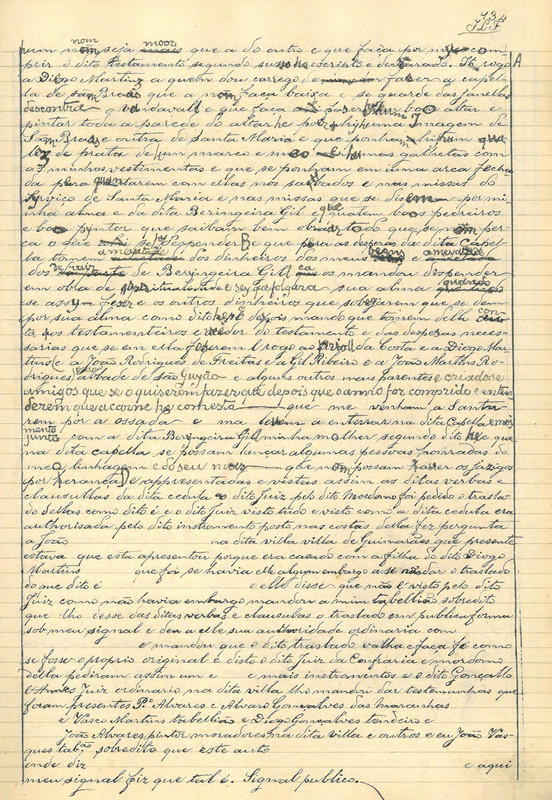 hum nom seja moor que a do outro e que faça por m com
prir o dito testamento segundo suso he escrito e declarado. It. rogo
a Diogo Martinz a quem dou carrego de fazer a capel
la de sam Bras que a nom faça baixa e se guarde das janellas
descontra o vendavall e que faça poer hum boo altar e
pintar toda a parede do altar he poer hi huma Imagem de
Sam Bras e outra de Santa Maria e que ponham hi hum
de prata de hum marco e meo humas galhetas com
as minhas vestimentas e que se ponham em uma arca fecha
da pera quando cantarem com ellas nos sabbados e nas missas do
serviço de Santa Maria e nas missas que se disem por mi
nha alma e da dita Beringeira Gil e que catem boos pedreiros
e boo pyntor que saibam bem obrar todo que se nom per
ca o que se hy despender E que pera as despesas da dita capel
la tomem dos dinheiros dos meus bens e ametade
dos de Beringeira Gill ca os mandou despender
em obra de spiritualidade e sey que folgára sua alma quando
se assy fezer e os outros dinheiros que sobejarem que se dem
por sua alma como dito he e depois mando que tomem delle conta
os testamenteiros e vedor do testamento e das despesas neces
sarias que se em ella fezerem E rogo ao prioll da Costa e a Diogo Mar
tins e a João Rodrigues de Freitas e a Gil Ribeiro e a João Martins Ro
drigues abbade de são e alguns outros mais parentes e criados e
amigos que se o quiserem fazer que depois que o anno for comprido e enten
derem que a carne he comesta que me venham a Santa
rem por a ossada e ma levem a enterrar na dita Capella e mo
mento junto com a dita Beringeira Gill minha molher segundo dito he que
na dita capella se possam lançar algumas pessoas honradas do
meo linhagem e do seu que nom possam haver os jazigos
por herança E apresentadas e vistas assim as ditas verbas e
clausullas da dita cedula o dito Juiz pelo dito Mordomo foi pedido o trasla
do dellas como dito é e o dito Juiz visto tudo e visto como a dita cedula era
authorisada pelo dito instrumento posto nas costas della fez pergunta
a João na dita villa villa de Guimarães que presente
estava que esta apresentou porque era casado com a filha do dito Diogo
Martins que foi se havia elle algum embargo a se nom dar o traslado
do que dito é e elle disse que não e visto pelo dito
Juiz como não havia embargo mandou a mim tabellião sobredito
que lho désse das ditas verbas e clausulas o traslado em publica forma
sob meu signal e deu a elle sua authoridade ordinaria com
e mandou que o dito traslado valha e faça fé como
se fosse o proprio original e disto o dito Juiz da Confraria e mordomo
della pediram assim um e mais instrumentos e o dito Gonçallo
Juiz ordinario na dita villa lho mandou dar testemunhas que
foram presentes Pº Alvares e Alvaro Gonçalves das Maranhas
e Vasco Martins tabellião e Diogo Gonçalves tendeiro e
João Alvares pintor moradores na dita villa e outros e eu João Vas
ques tabam sobredito que este auto
onde diz e aqui
meu signal fiz que tal é. Signal publico.